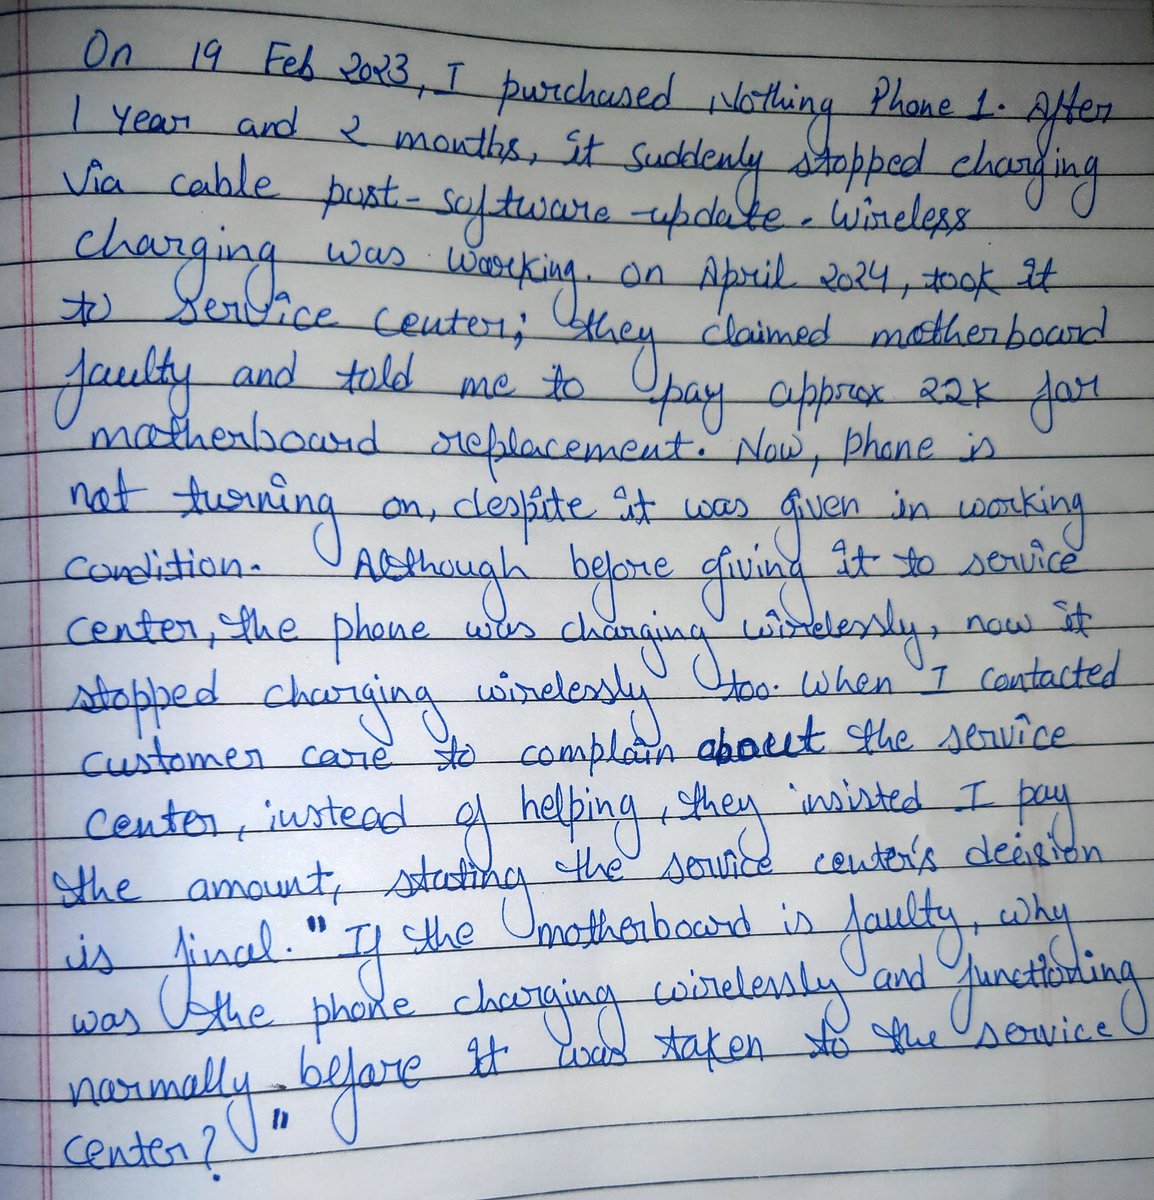 On 19 Feb 2023, I purchased Nothing Phone 1. After
1 year and 2 months, it suddenly stopped charging
via cable post-software-update. Wireless
charging was working. on April 2024, took it
to service center; they claimed motherboard
faulty and told me to pay approx 22K for
motherboard replacement. Now, phone is
not turning on, despite it was given in working
condition. Although before giving it to service
center, the phone was charging wirelessly, now it
stopped charging wirelessly too. When I contacted
customer care to complain about the service
center, instead of helping, they insisted I pay
the amount, stating the service center's decision
is final. "If the motherboard is faulty, why
was the phone charging wirelessly and functioning
normally before it was taken to the service
center?"